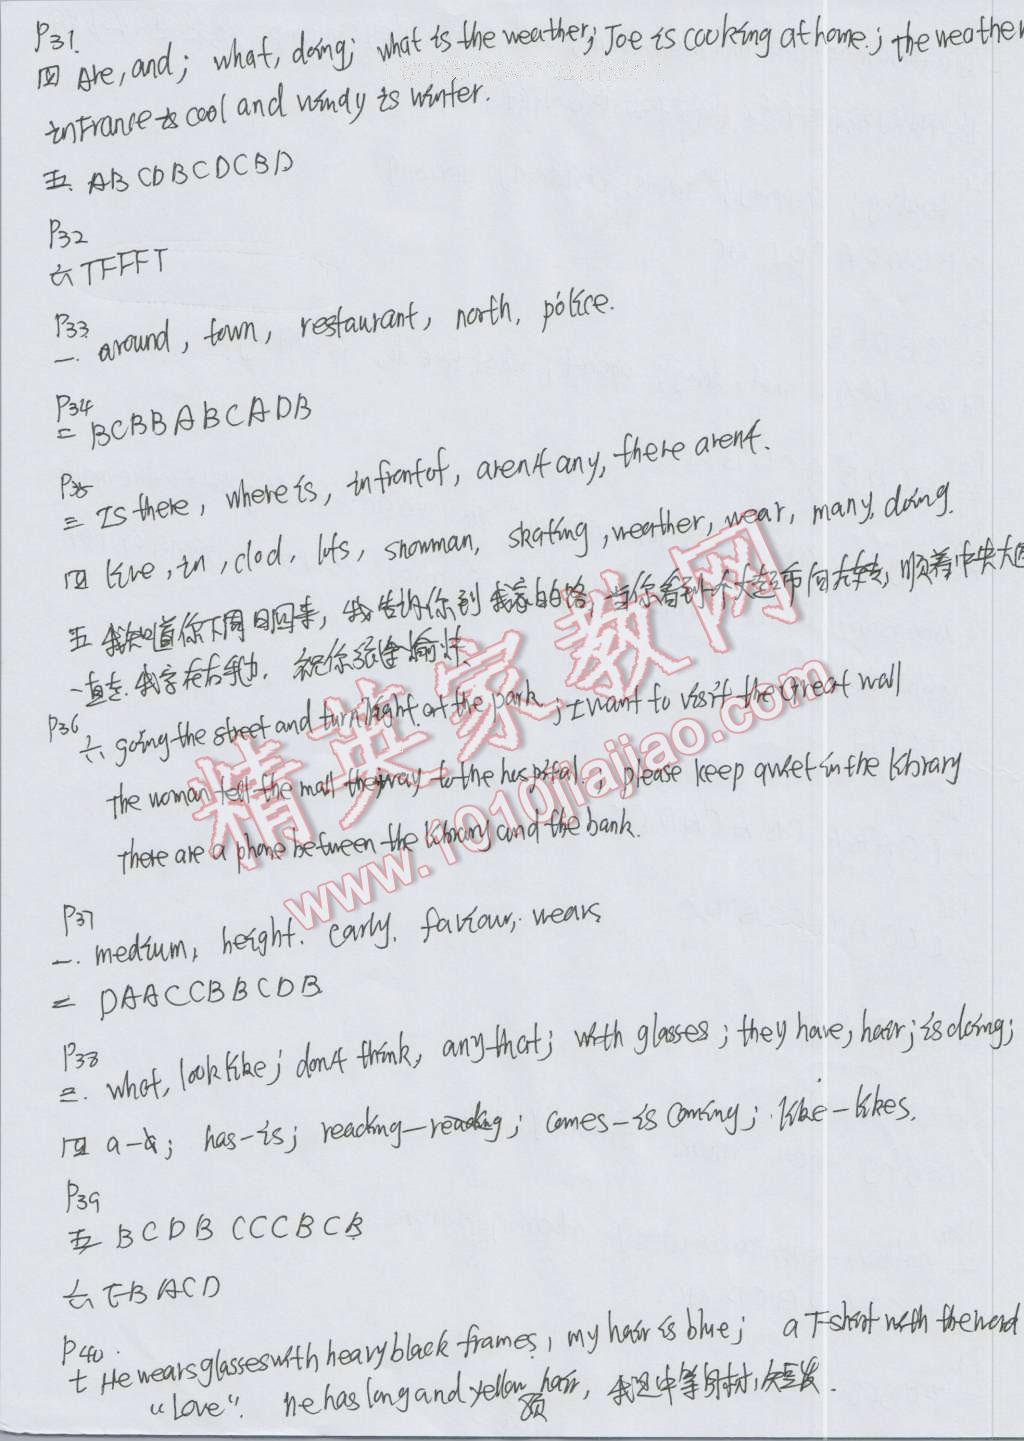 P31.
四 Are, and; what, doing; what is the weather; Joe is cooking at home.; the weather
in France is cool and windy is winter.
五. ABCDBCDCBD
P32
六 TFFFT
P33
一. around, town, restaurant, north, police.
P34
二 BCBBABCADB
P35
三 Is there, where is, in front of, aren't any, there aren't.
四 live, in, clod, lots, snowman, skating, weather, wear, many, doing.
五 我知道你下周日回来, 我告诉你到我家的路, 当你看到一个大超市向右转, 顺着中央大
一直走. 我家在右手边. 祝你旅途愉快.
P36
六 going the street and turn right at the park; I want to visit the Great wall
The woman tell the man the way to the hospital.; please keep quiet in the library
There are a phone between the library and the bank.
P37
一. medium, height. early. favour, wears
二 DAACCBBCDB
P38
三. what, look like; don't think, any that; with glasses; they have, hair; is doing;
四 a-; has-is; reading-; comes-is coming; like-likes.
P39
五 BCDB CCCBCB
六 EBACD
P40.
七 He wears glasses with heavy black frames, my hair is blue; a T-shirt with the word
"Love". he has long and yellow hair, 我是中等身材,
精英家教网
www.1010jiajiao.com